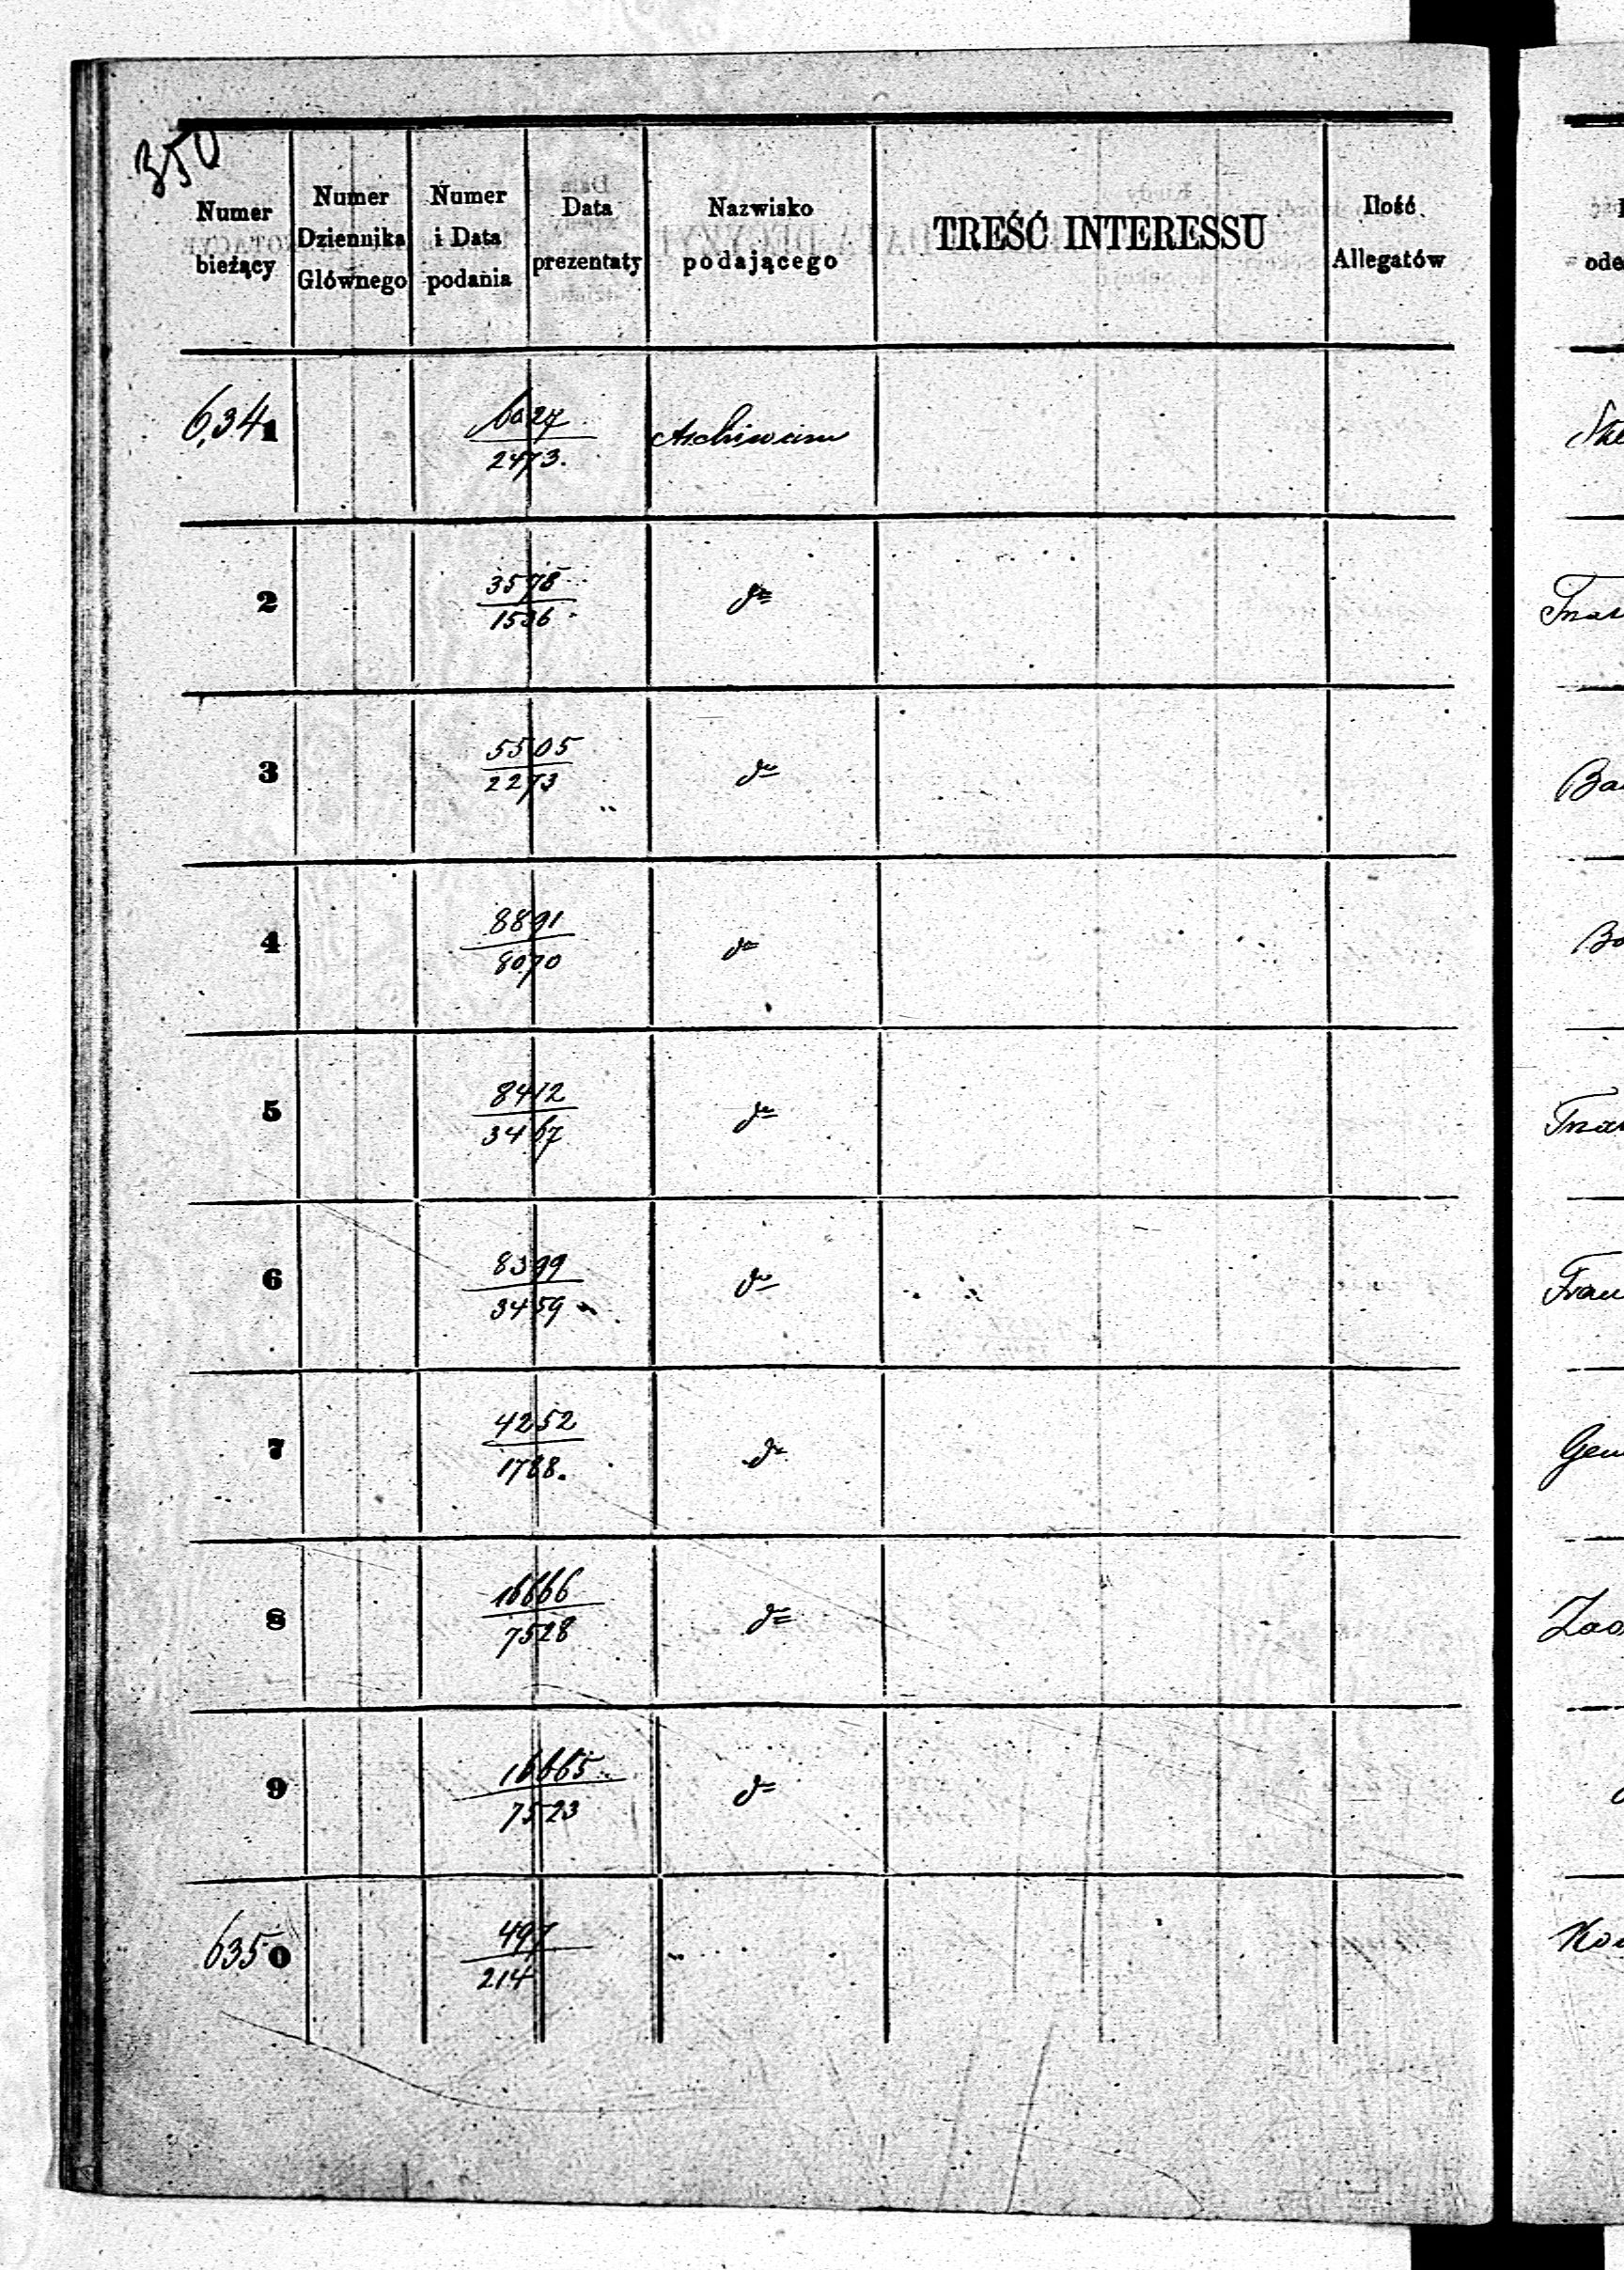 350
Numer bieżący
Numer Dziennika Głównego
Numer i Data podania
Data prezentaty
Nazwisko podającego
TREŚĆ INTERESSU
Ilość Allegatów
6,341
6027
2473.
Archiwum
2
3578
1536
do
3
5505
2273
do
4
8891
8070
do
5
8412
3467
do
6
8399
3459
do
7
4252
1788.
do
8
16666
7528
do
9
16665
7523
do
6350
497
214